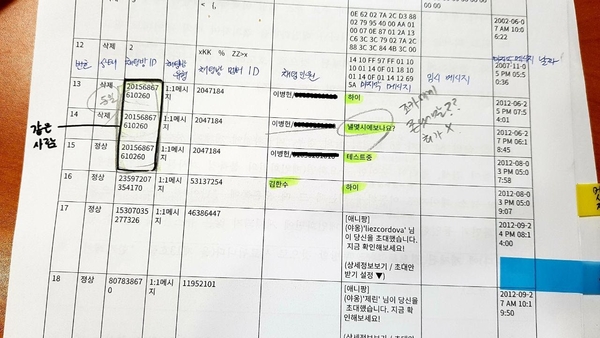 0E 62 02 7A 2C D3 88
02 79 95 40 00 AA 01
00 07 0E 87 01 2A 13
C6 3C 3C 79 02 7A 2C
88 3C 3C 84 4B 3C 00
00
2002-06-0
7 AM 10:0
6:22
12 삭제 2 xKK % ZZ>x
14 10 FF 97 FF 01 10
10 01 14 0F 01 18 10
01 14 0F 01 14 12 69
5A
2007-11-0
5 PM 05:5
0:36
번호 상태 채팅방 ID 채팅방 유형 채팅방 멤버 ID 채팅 인원 마지막 메시지 임시 메시지 날짜
13 삭제 20156867
610260
1:1메시
지
2047184 이병헌/ 하이
2012-06-0
7 PM 05:5
4:01
14 삭제 20156867
610260
1:1메시
지
2047184 이병헌/ 낼몇시에보나요?
2012-06-1
7 PM 06:1
8:45
15 정상 20156867
610260
1:1메시
지
2047184 이병헌/ 테스트중
2012-08-0
3 PM 05:0
7:58
같은
사람
16 정상 23597207
354170
1:1메시
지
53137254 김한수 하이
2012-08-0
3 PM 05:0
9:07
17 정상 15307035
277326
1:1메시
지
46386447
[애니팡]
(야옹)'liezcordova' 님
이 당신을 초대했습니다.
지금 확인해보세요!
(상세정보보기 / 초대안
받기 설정 ▼)
2012-09-2
4 PM 08:1
4:00
18 정상 80783867
0
1:1메시
지
11952101
[애니팡]
(야옹)'제린' 님이 당신을
초대했습니다. 지금 확
인해보세요!
(상세정보보기 / 초대안
2012-09-2
7 AM 10:1
9:50